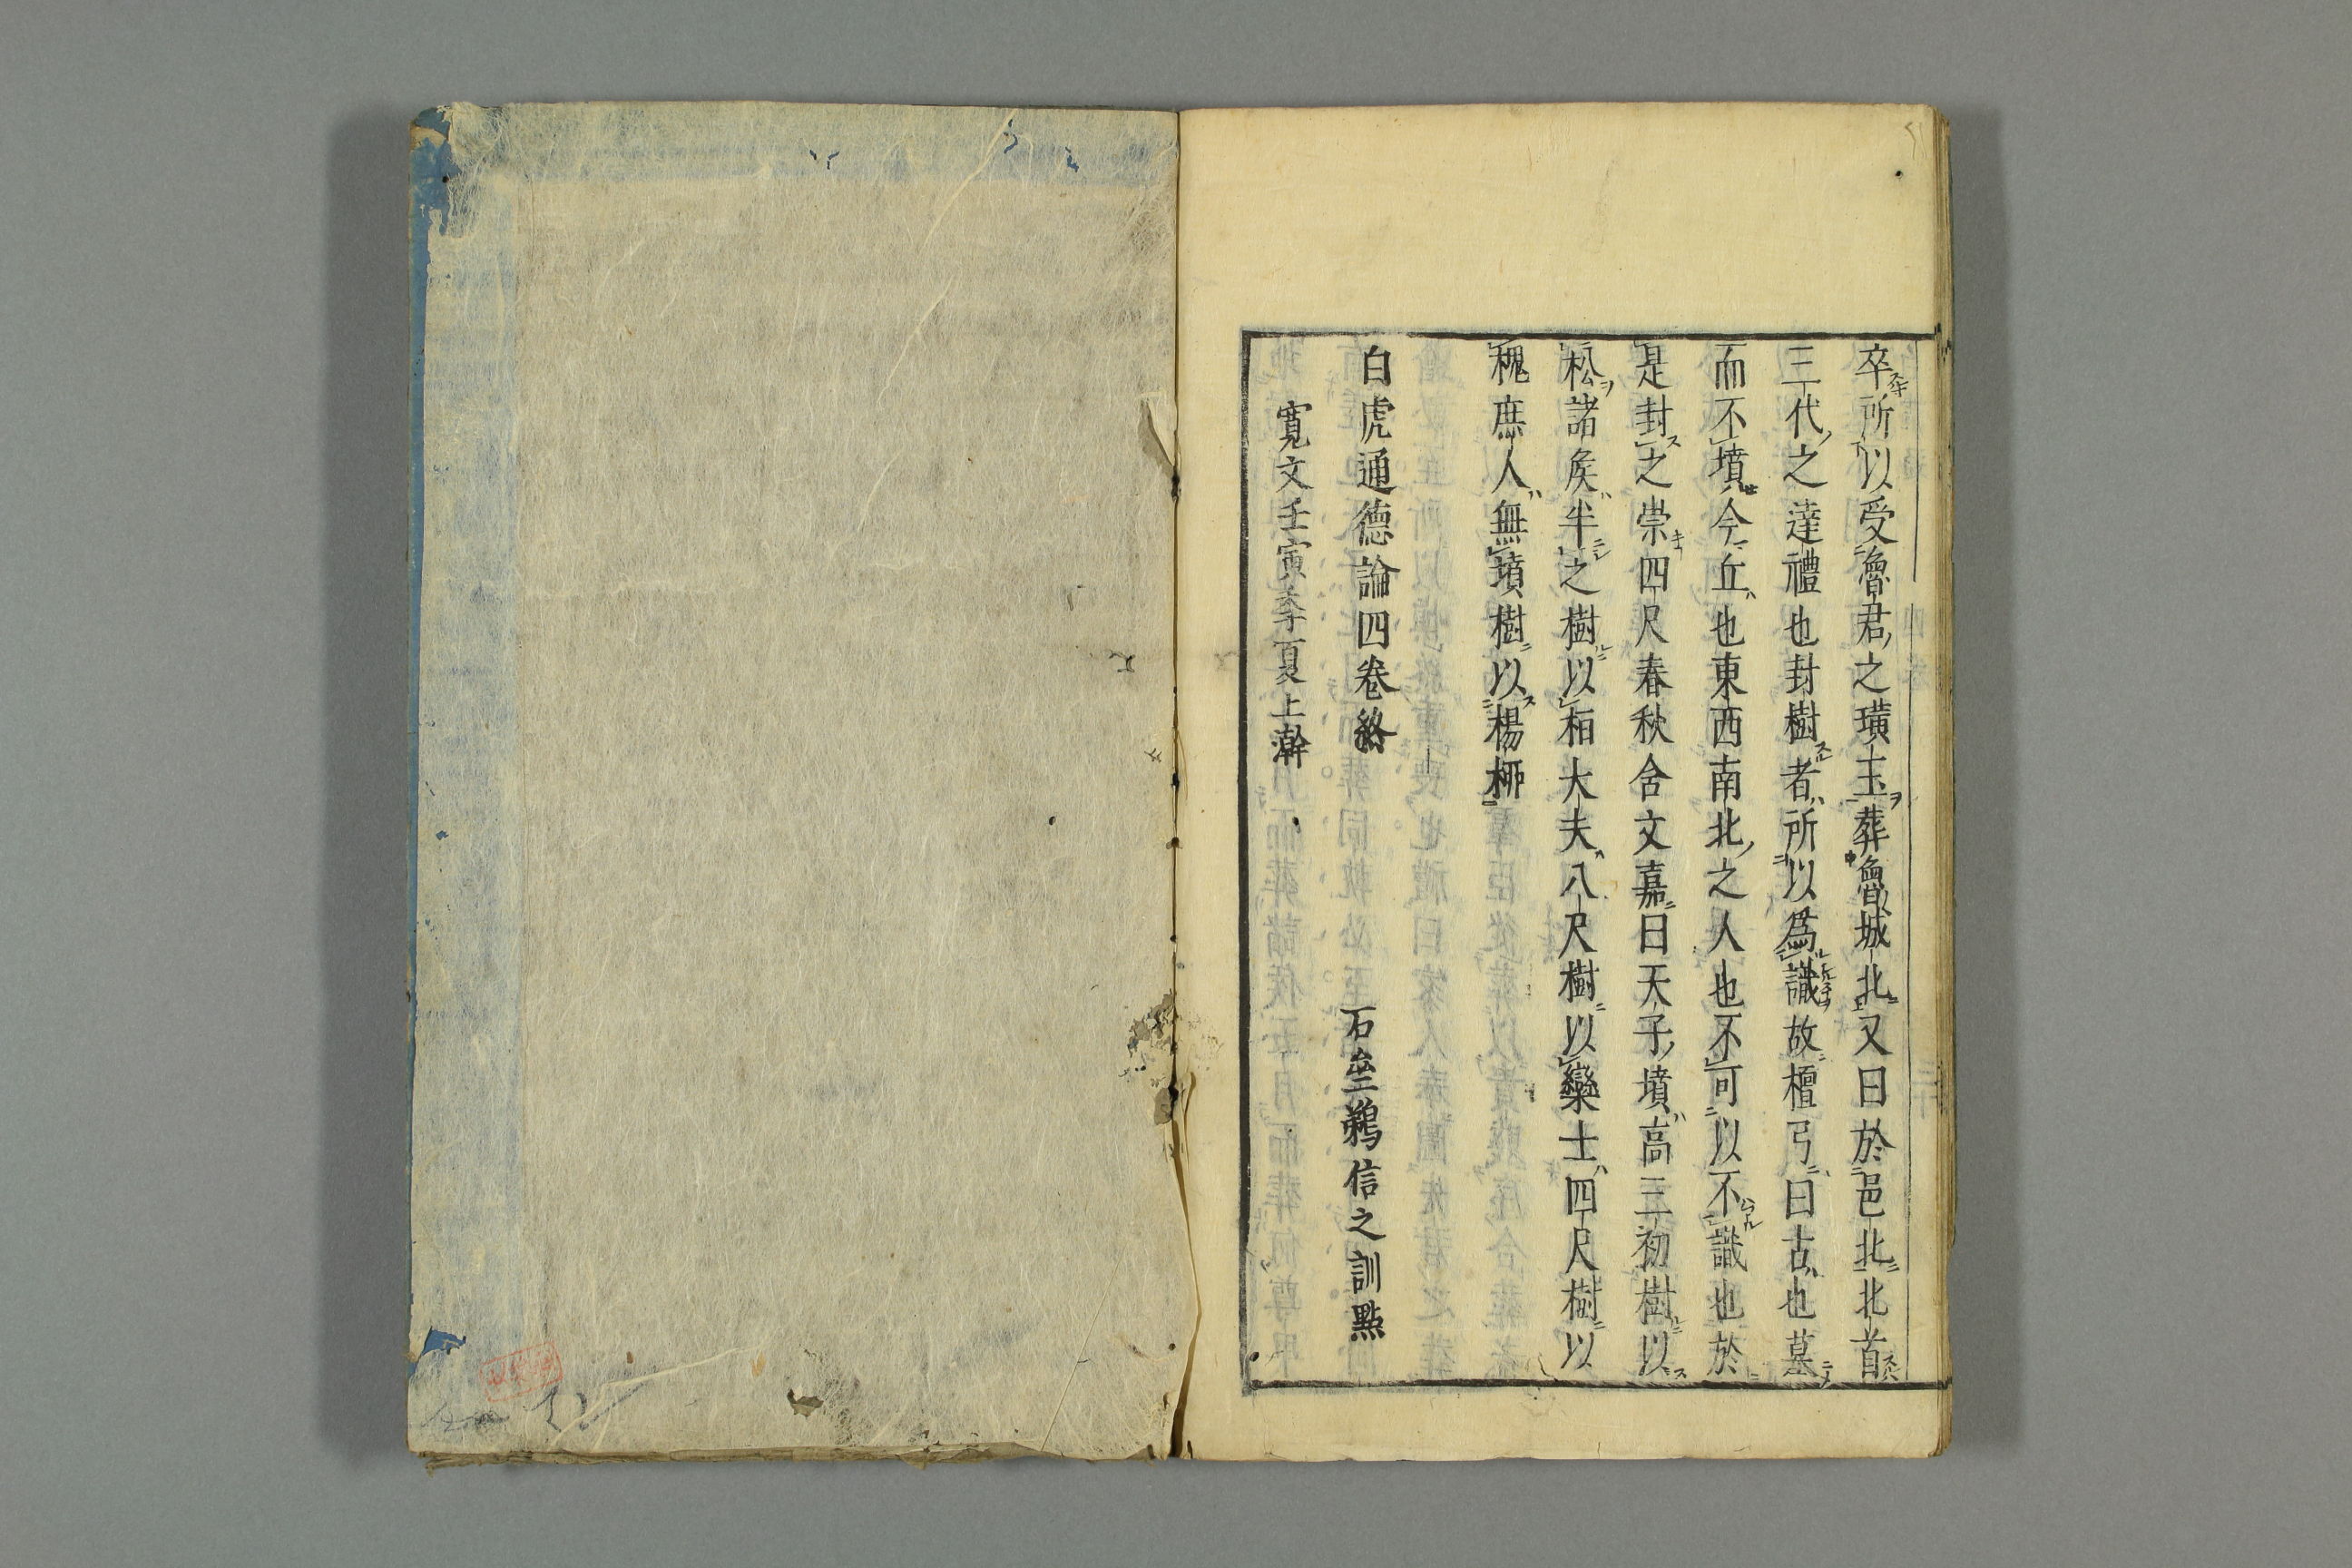 卒所以受魯君之璜玉葬魯城北又曰於邑北北首
三代之達禮也封樹者所以爲識故檀弓曰古也墓
而不墳今丘也東西南北之人也不可以不識也於
是封之崇四尺春秋含文嘉曰天子墳高三初樹以
松諸矦半之樹以栢大夫八尺樹以欒士四尺樹以
槐庶人無墳樹以楊桺
白虎通德論四卷終
石垒鵜信之訓點
寬文壬寅季夏上澣